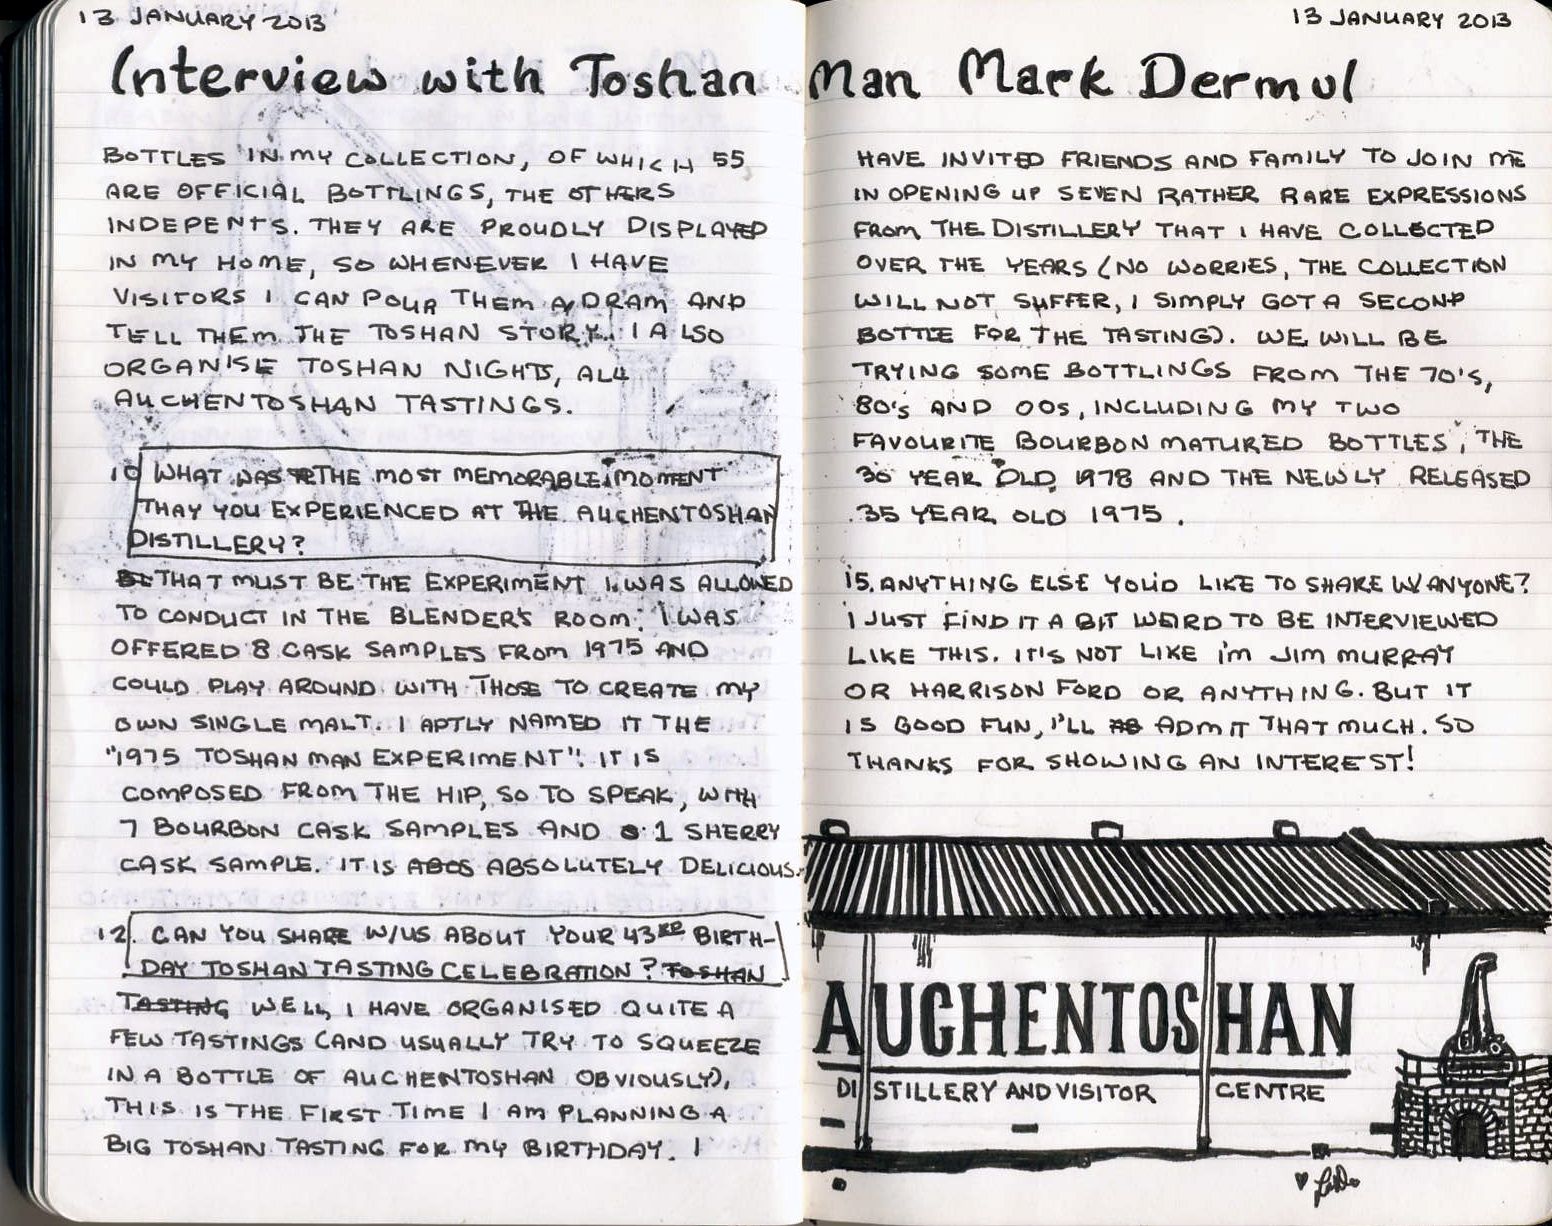 13 JANUARY 2013
Interview with Toshan
BOTTLES IN MY COLLECTION, OF WHICH 55
ARE OFFICIAL BOTTLINGS, THE OTHERS
INDEPENTS. THEY ARE PROUDLY DISPLAYED
IN MY HOME, SO WHENEVER I HAVE
VISITORS I CAN POUR THEM A DRAM AND
TELL THEM THE TOSHAN STORY. I ALSO
ORGANISE TOSHAN NIGHTS, ALL
AUCHENTOSHAN TASTINGS.
10 WHAT WAS THE MOST MEMORABLE MOMENT
THAY YOU EXPERIENCED AT THE AUCHENTOSHAN
DISTILLERY?
THAT MUST BE THE EXPERIMENT I WAS ALLOWED
TO CONDUCT IN THE BLENDER'S ROOM. I WAS
OFFERED 8 CASK SAMPLES FROM 1975 AND
COULD PLAY AROUND WITH THOSE TO CREATE MY
OWN SINGLE MALT. I APTLY NAMED IT THE
"1975 TOSHAN MAN EXPERIMENT". IT IS
COMPOSED FROM THE HIP, SO TO SPEAK, WITH
7 BOURBON CASK SAMPLES AND 1 SHERRY
CASK SAMPLE. IT IS ABOS ABSOLUTELY DELICIOUS.
12. CAN YOU SHARE W/US ABOUT YOUR 43RD BIRTH-
DAY TOSHAN TASTING CELEBRATION? TOSHAN
TASTING WELL, I HAVE ORGANISED QUITE A
FEW TASTINGS (AND USUALLY TRY TO SQUEEZE
IN A BOTTLE OF AUCHENTOSHAN OBVIOUSLY),
THIS IS THE FIRST TIME I AM PLANNING A
BIG TOSHAN TASTING FOR MY BIRTHDAY. I
13 JANUARY 2013
Man Mark Dermul
HAVE INVITED FRIENDS AND FAMILY TO JOIN ME
IN OPENING UP SEVEN RATHER RARE EXPRESSIONS
FROM THE DISTILLERY THAT I HAVE COLLECTED
OVER THE YEARS (NO WORRIES, THE COLLECTION
WILL NOT SUFFER, I SIMPLY GOT A SECOND
BOTTLE FOR THE TASTING). WE WILL BE
TRYING SOME BOTTLINGS FROM THE 70'S,
80's AND 00s, INCLUDING MY TWO
FAVOURITE BOURBON MATURED BOTTLES, THE
30 YEAR OLD 1978 AND THE NEWLY RELEASED
35 YEAR OLD 1975.
15. ANYTHING ELSE YOU'D LIKE TO SHARE W/ANYONE?
I JUST FIND IT A BIT WEIRD TO BE INTERVIEWED
LIKE THIS. IT'S NOT LIKE I'm JIM MURRAY
OR HARRISON FORD OR ANYTHING. BUT IT
IS GOOD FUN, I'LL ADMIT THAT MUCH. SO
THANKS FOR SHOWING AN INTEREST!
AUCHENTOSHAN
DISTILLERY AND VISITOR CENTRE